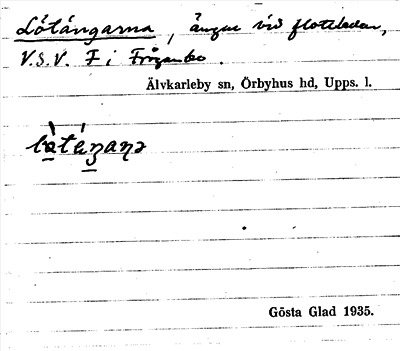 Lötängarna, ängar vid flottleden,
V.S.V. F i
Älvkarleby sn, Örbyhus hd, Upps. l.
Gösta Glad 1935.